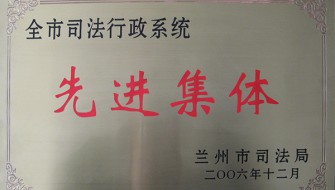 全市司法行政系统
先进集体
兰州市司法局
二〇〇六年十二月